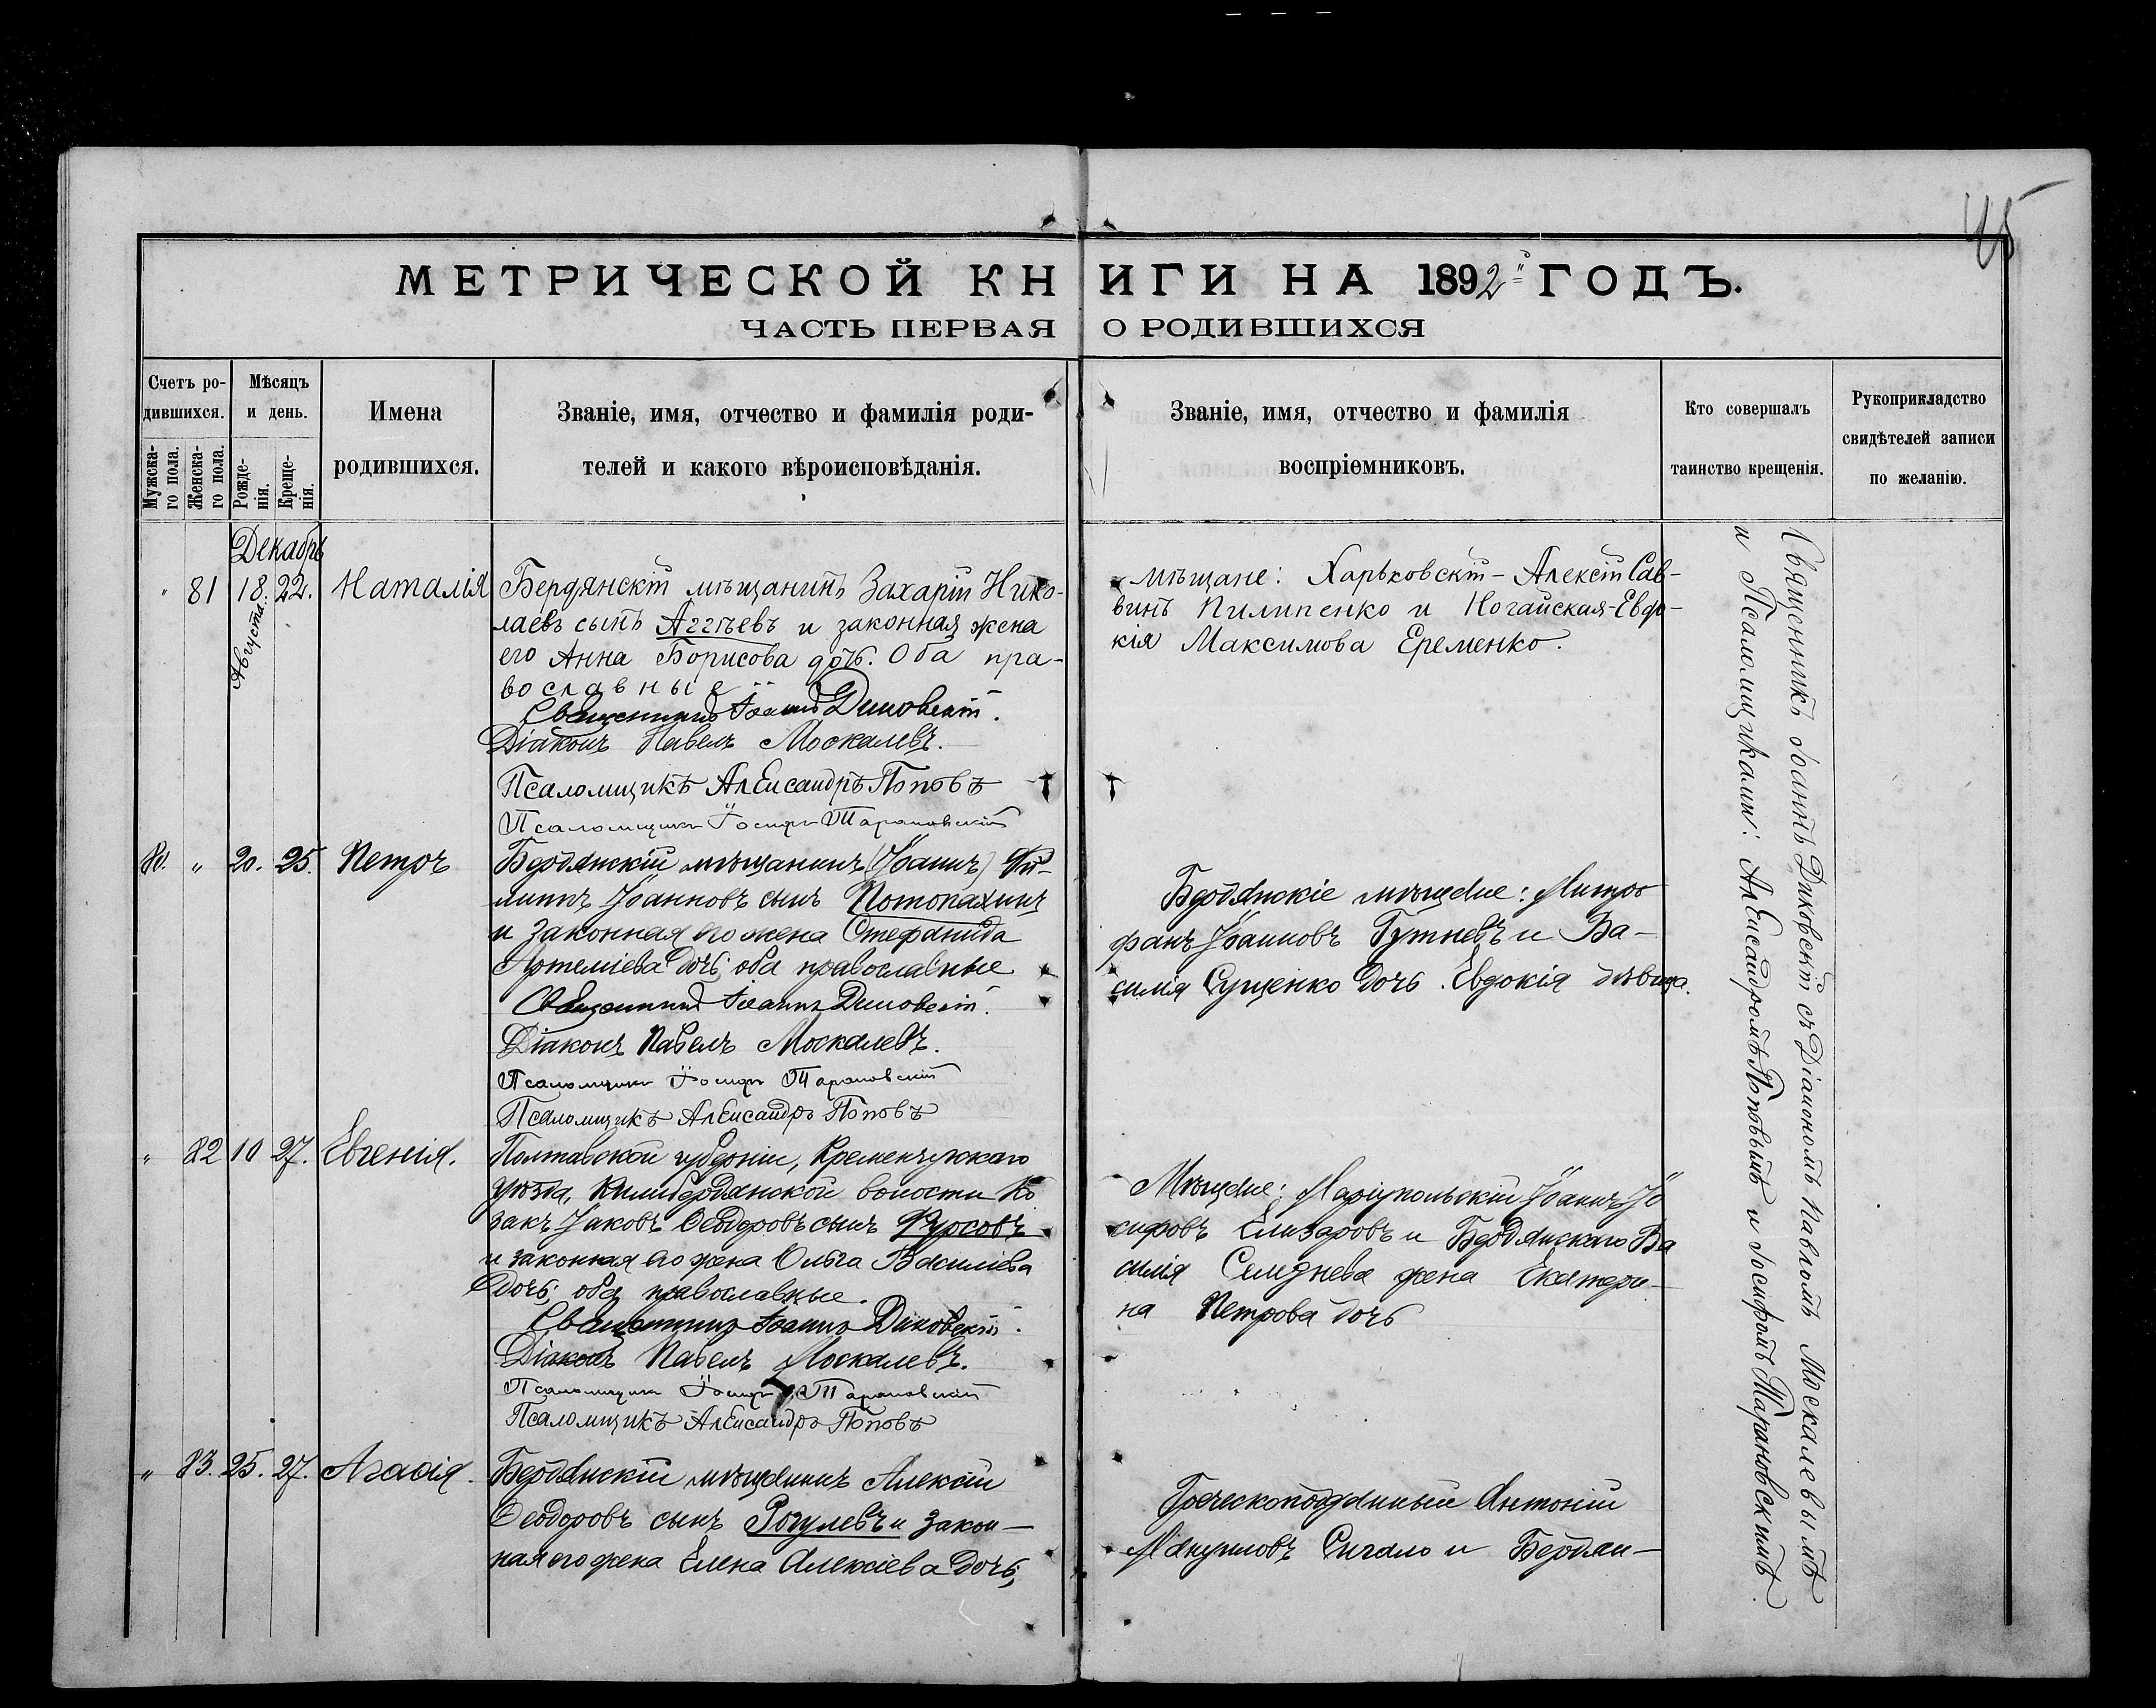 85
МЕТРИЧЕСКОЙ КНИГИ НА 1892й ГОДЪ.
ЧАСТЬ ПЕРВАЯ О РОДИВШИХСЯ
Счетъ ро-
дившихся.
Мужска-
го пола.
Женска-
го пола.
Мѣсяцъ
и день.
Рожде-
нія.
Креще-
нія.
Имена
родившихся.
Званіе, имя, отчество и фамилія роди-
телей и какого вѣроисповѣданія.
Званіе, имя, отчество и фамилія
воспріемниковъ.
Кто совершалъ
таинство крещенія.
Рукоприкладство
свидѣтелей записи
по желанію.
Декабрь
" 81 18. 22. Наталія
Августа
Бердянскій мѣщанинъ Захарій Нико-
лаевъ сынъ Аггѣевъ и законная жена
его Анна Борисова дочь. Оба пра-
вославные
Священникъ Іоаннъ Диковскій.
Діаконъ Павелъ Москалевъ.
Псаломщикъ Александръ Поповъ
Псаломщикъ Іосифъ Тарановскій
мѣщане: Харьковскій - Алексій Сав-
винъ Пилипенко и Ногайская - Евдо-
кія Максимова Еременко.
80. " 20. 25. Петръ
Бердянскій мѣщанинъ (Іоаннъ) Фи-
липпъ Іоанновъ сынъ Потопахинъ
и законная его жена Стефанида
Артеміева дочь; оба православные
Священникъ Іоаннъ Диковскій.
Діаконъ Павелъ Москалевъ.
Псаломщикъ Іосифъ Тарановскій
Псаломщикъ Александръ Поповъ
Бердянскіе мѣщане: Митро
фанъ Іоанновъ Гутневъ и Ва-
силія Сущенко дочь. Евдокія дѣвица.
" 82 10 27. Евгенія.
Полтавской губерніи, Кременчужкаго
уѣзда, Килибердянской волости Ко
закъ Іаковъ Ѳеодоровъ сынъ Фурсовъ
и законная его жена Ольга Василіева
дочь; оба православные.
Священникъ Іоаннъ Диковскій.
Діаконъ Павелъ Москалевъ.
Псаломщикъ Іосифъ Тарановскій
Псаломщикъ Александръ Поповъ
Мѣщане: Маріупольскій Іоаннъ Іо
сифовъ Елизаровъ и Бердянскаго Ва
силія Селезнева жена Екатери-
на Петрова дочь
" 83. 25. 27. Агафія.
Бердянскій мѣщанинъ Алексій
Ѳеодоровъ сынъ Рогулевъ и закон-
ная его жена Елена Алексіева дочь;
Греческоподданный Антоній
Мануиловъ Сигало и Бердян-
Священникъ Іоаннъ Диковскій съ Діакономъ Павломъ Москалевымъ
и Псаломщиками: Александромъ Поповымъ и Іосифомъ Тарановскимъ.